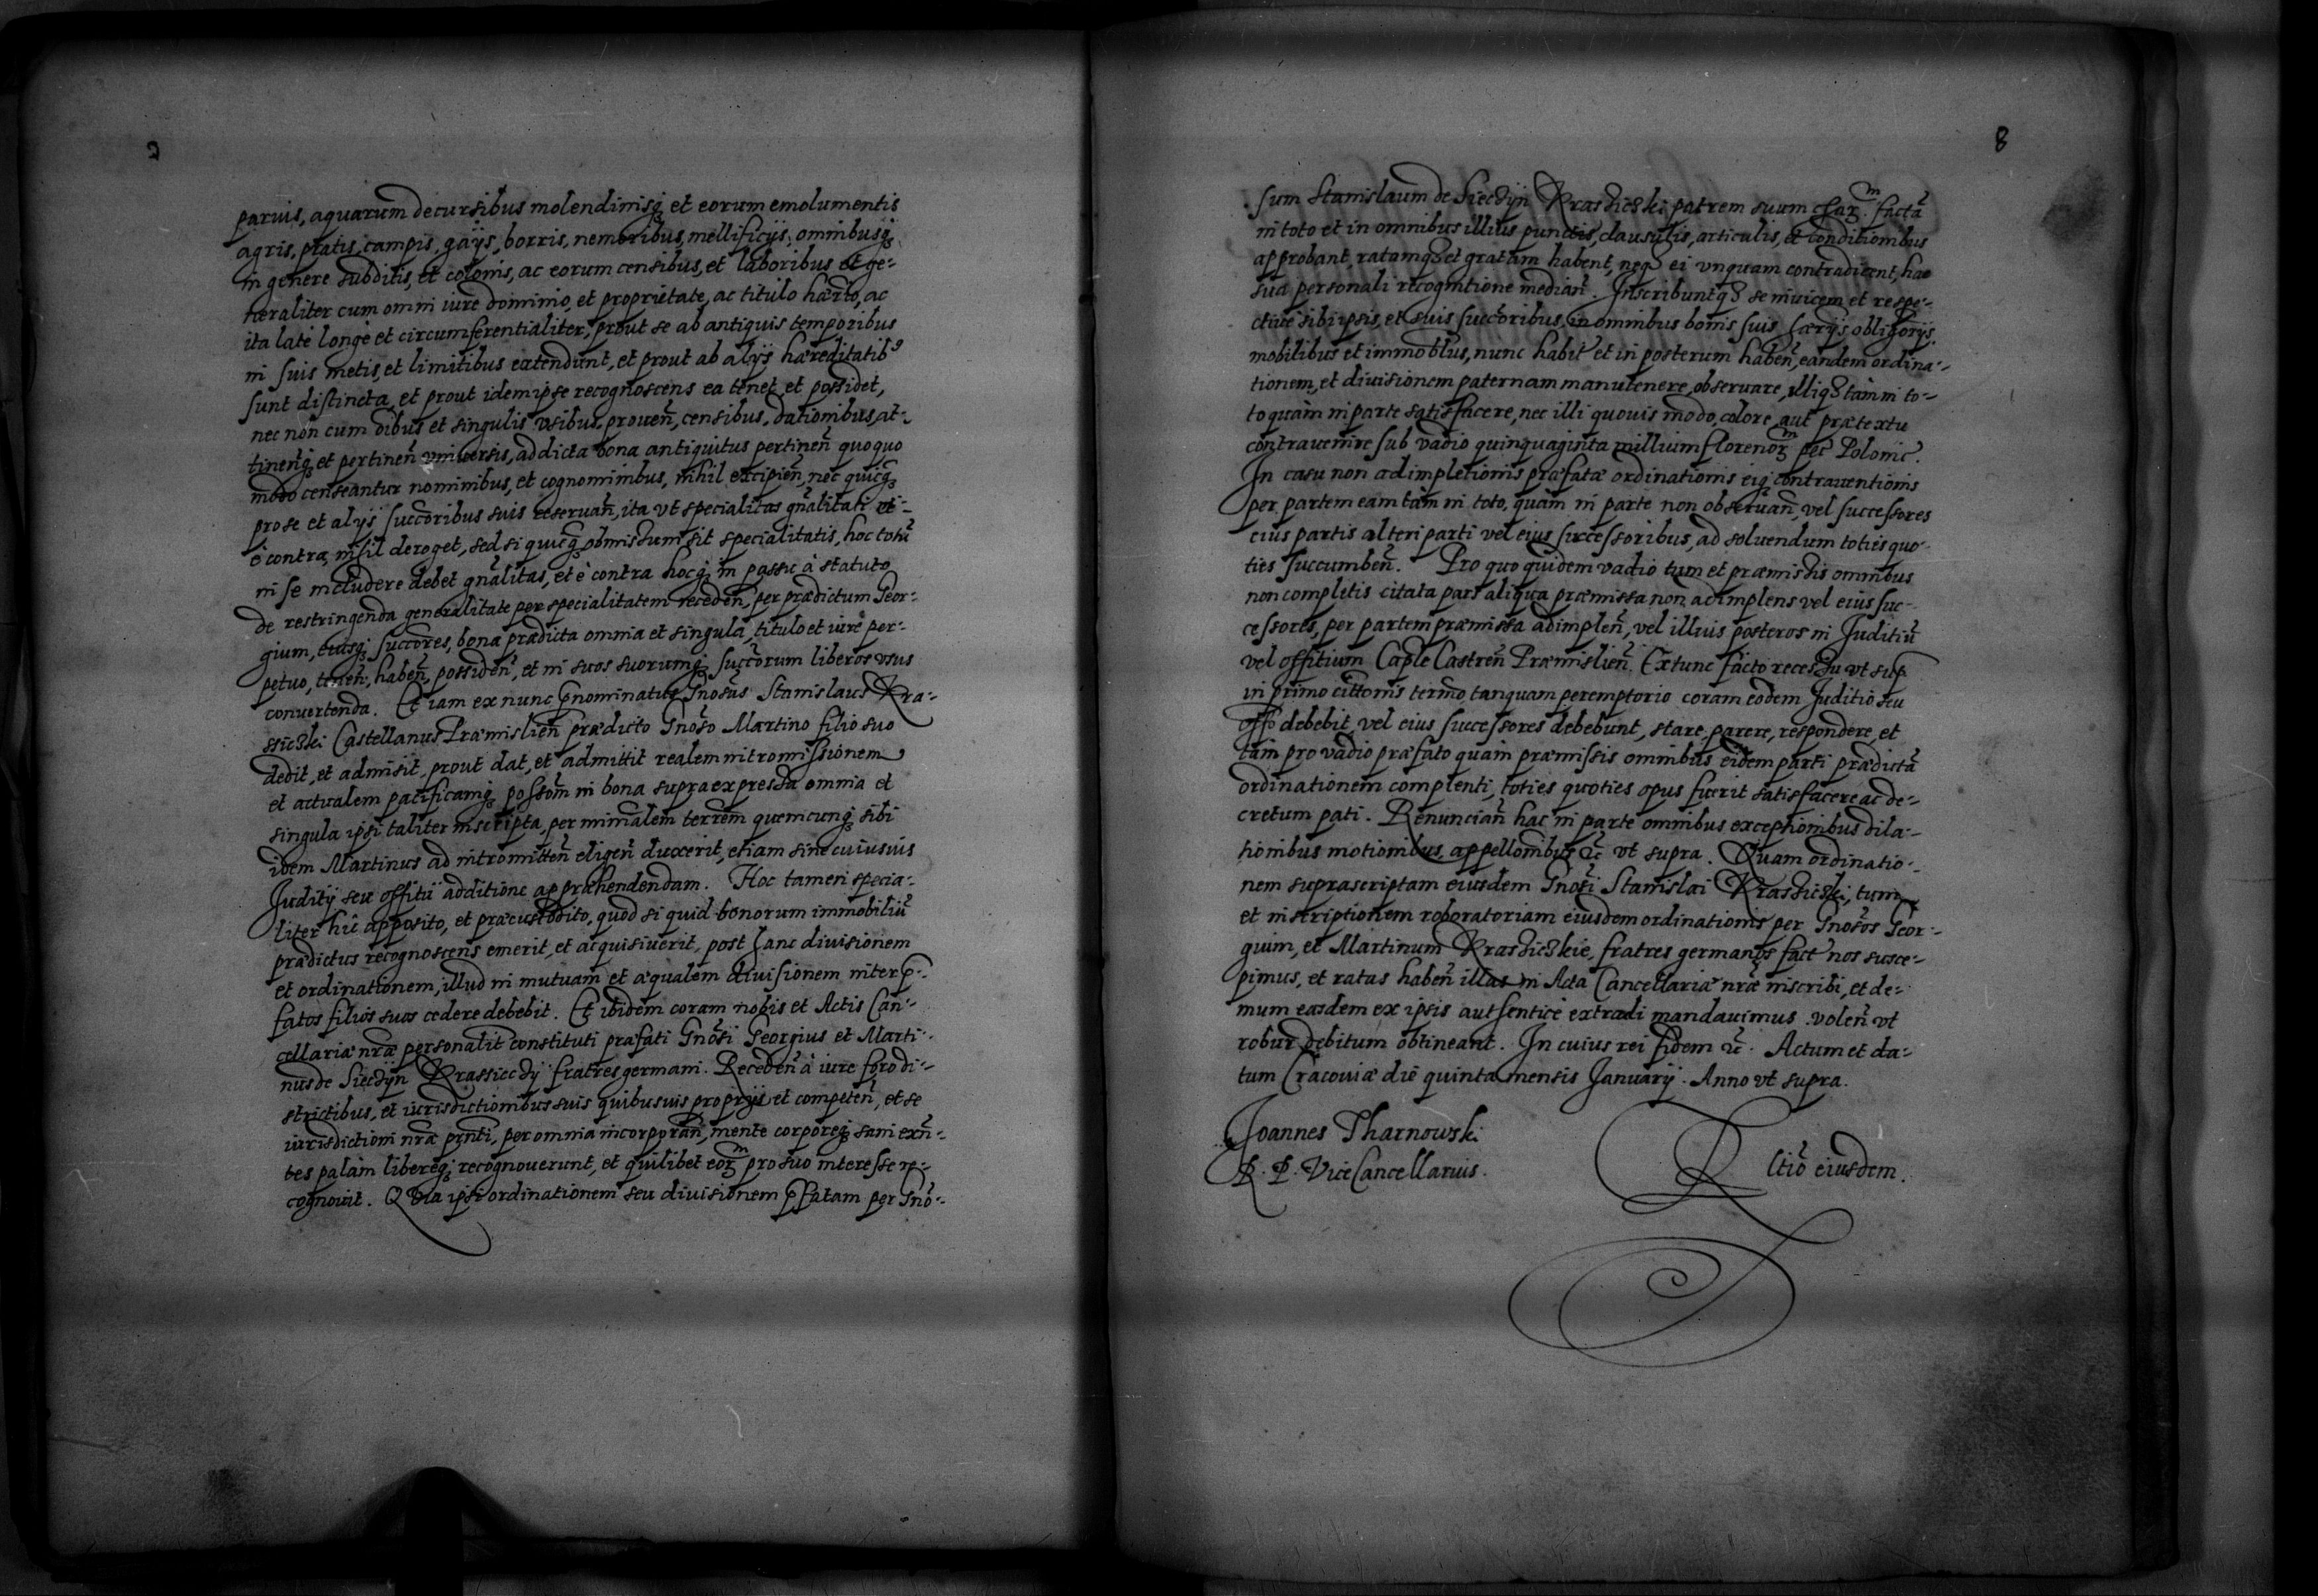 paruis, aquarum decursibus molendinisq; et eorum emolumentis
agris, pratis, campis, gays, borris, nemoribus, mellificijs, omnibusq;
in genere subditis, et colonis, ac eorum censibus, et laboribus et ge-
neraliter cum omni iure dominio, et proprietate, ac titulo hærio, ac
ita latè longè et circumferentialiter, prout se ab antiquis temporibus
in suis metis, et limitibus extendunt, et prout ab alijs hæreditatib9
sunt distincta, et prout idem ipse recognoscens ea tenet et possidet,
nec non cum oibus et singulis vsibus, prouen, censibus, dationibus, at-
tinenq; et pertinen vniuersis, ad dicta bona antiquitus pertinen quoquo
modo censeantur nominibus, et cognominibus, nihil excipien, nec quicq;
pro se et alijs succoribus suis reseruan, ita vt specialitas gnalitati et
è contra, nihil deroget, sed si quicq; obmissum sit specialitatis, hoc totu
in se includere debet gnalitas, et è contra hocq; in passu à statuto
de restringenda generalitate per specialitatem receden, per prædictum Geor-
gium, eiusq; succores, bona prædicta omnia et singula, titulo et iure per-
petuo, tenen, haben, possiden, et in suos suorumq; succorum liberos vsus
conuertenda. Et iam ex nunc pnominatus Gnosus Stanislaus Kra-
ssiczki Castellanus Præmislien prædicto Gnoso Martino filio suo
dedit, et admisit, prout dat, et admittit realem intromissionem
et actualem pacificamq; possom in bona supra expressa omnia et
singula ipsi taliter inscripta, per minalem terrem quemcunq; sibi
idem Martinus ad intromitten eligen duxerit, etiam sine cuiusuis
Juditij seu offitij additione apprahendendam. Hoc tamen specia-
liter hic apposito, et præcustodito, quod si quid bonorum immobiliu
prædictus recognoscens emerit, et acquisiuerit, post hanc diuisionem
et ordinationem, illud in mutuam et æqualem diuisionem inter p-
fatos filios suos cedere debebit. Et ibidem coram nobis et Actis Can-
cellariæ nræ personalit constituti præfati Gnosi Georgius et Marti-
nus de Siecijn Krassieczij fratres germani. Receden à iure foro di-
strictibus, et iurisdictionibus suis quibusuis proprijs et competen, et se
iurisdictioni nræ pnti, per omnia incorporan, mente corporeq; sani exn-
tes palàm libereq; recognouerunt, et quilibet eorm pro suo interesse re-
cognouit. Quia ipsi ordinationem seu diuisionem pfatam per Gno-
8
sum Stanislaum de Siecijn Krasiczki patrem suum charm factã
in toto et in omnibus illius punctis, clausulis, articulis, et conditionibus
approbant, ratamq3 et gratam habent, neq3 ei vnquam contradicent, hac
sua personali recognitione median. Inscribuntq3 se inuicem et respe-
ctiuè sibi ipsis, et suis succoribus, in omnibus bonis suis hærijs obligorijs,
mobilibus et immoblus, nunc habit et in posterum haben, eandem ordina-
tionem, et diuisionem paternam manutenere, obseruare, illiq3 tam in to-
to quàm in parte satisfacere, nec illi quouis modo, colore, aut prætextu
contrauenire sub vadio quinquaginta millium florenorm pec Polonic.
In casu non adimpletionis præfatæ ordinationis eiq; contrauentionis
per partem eam tàm in toto, quàm in parte non obseruan, vel successores
eius partis alteri parti vel eius successoribus, ad soluendum toties quo-
ties succumben. Pro quo quidem vadio tum et præmissis omnibus
non completis citata pars aliqua præmissa non adimplens vel eius suc-
cessores, per partem præmissa adimplen, vel illius posteros in Juditiu
vel offitium Caple Castren Præmislien. Ex tunc facto recessu vt sup
in primo cittonis termo tanquam peremptorio coram eodem Juditio seu
offo debebit, vel eius successores debebunt, stare, parere, respondere, et
tam pro vadio præfato quàm præmissis omnibus eidem parti prædictã
ordinationem complenti, toties quoties opus fuerit satisfacere ac de-
cretum pati. Renuncian hac in parte omnibus exceptionibus dila-
tionibus motionibus, appellonibus &c vt supra. Quam ordinatio-
nem suprascriptam eiusdem Gnosi Stanislai Krasiczki, tum
et inscriptionem roboratoriam eiusdem ordinationis per Gnosos Geor-
gium, et Martinum Krasiczkie, fratres germanos fact nos susce-
pimus, et ratas haben illas in Acta Cancellariæ nræ inscribi, et de-
mum easdem ex ipsis authenticè extradi mandauimus. volen vt
robur debitum obtineant. In cuius rei fidem &c. Actum et da-
tum Cracouiæ die quinta mensis Januarij. Anno vt supra.
Joannes Tharnowski
R. P. ViceCancellarius.
Rltio eiusdem.